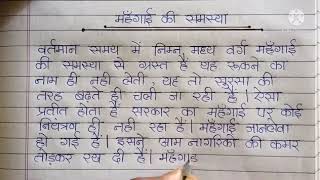 महँगाई की समस्या
वर्तमान समय में निम्न मध्य वर्ग महँगाई
की समस्या से ग्रस्त है यह रूकने का
नाम ही नही लेती, यह तो सुरसा की
तरह बढ़ते ही चली जा रही है। ऐसा
प्रतीत होता है सरकार का महँगाई पर कोई
नियंत्रण ही नही रहा है। महँगाई जानलेवा
हो गई है। इसने आम नागरिकों की कमर
तोड़कर रख दी है। महँगाई